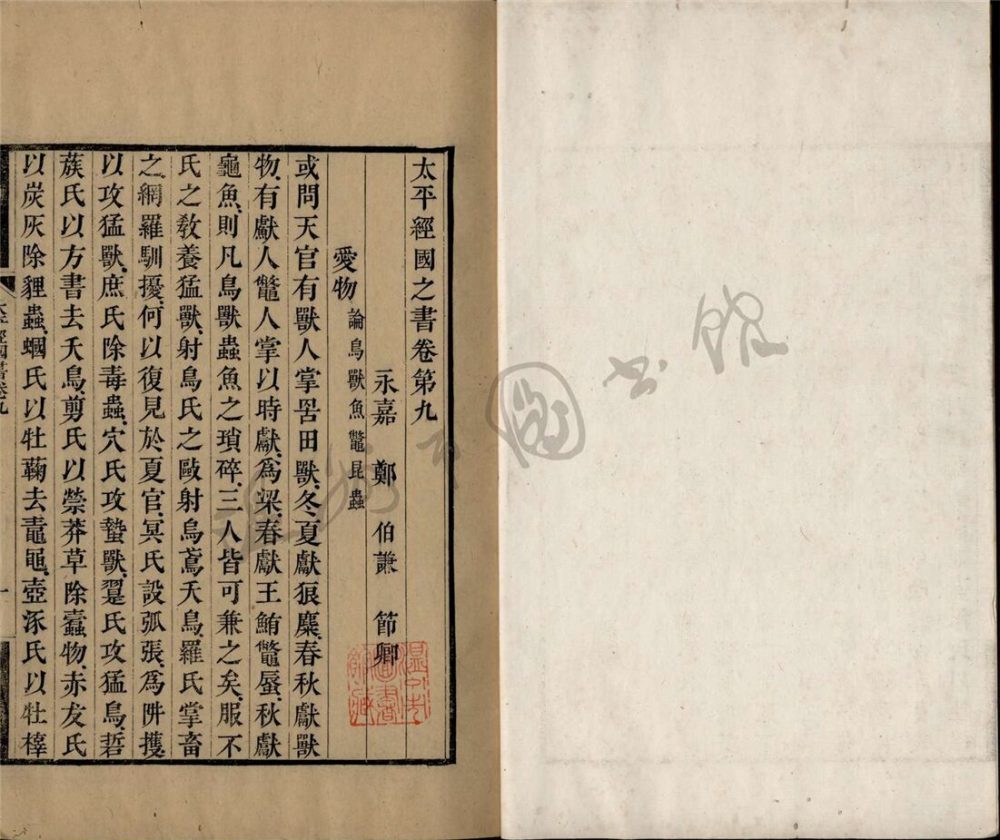 太平經國之書卷第九
永嘉 鄭 伯謙 節卿
愛物 論鳥獸魚鼈昆蟲
或問天官有獸人掌罟田獸、冬夏獻狼麋、春秋獻獸
物、有獻人鼈人掌以時獻、為梁、春獻王鮪鼈蜃、秋獻
龜魚、則凡鳥獸蟲魚之瑣碎、三人皆可兼之矣、服不
氏之教養猛獸、射鳥氏之敺射烏鳶夭鳥、羅氏掌畜
之網羅馴擾、何以復見於夏官、冥氏設弧張、為阱擭、
以攻猛獸、庶氏除毒蟲、穴氏攻蟄獸、翨氏攻猛鳥、硩
蔟氏以方書去夭鳥、剪氏以禜莽草除蠹物、赤犮氏
以炭灰除貍蟲、蟈氏以牡蘜去鼃黽、壺涿氏以牡橭
太平經國書卷九
一
圖書館